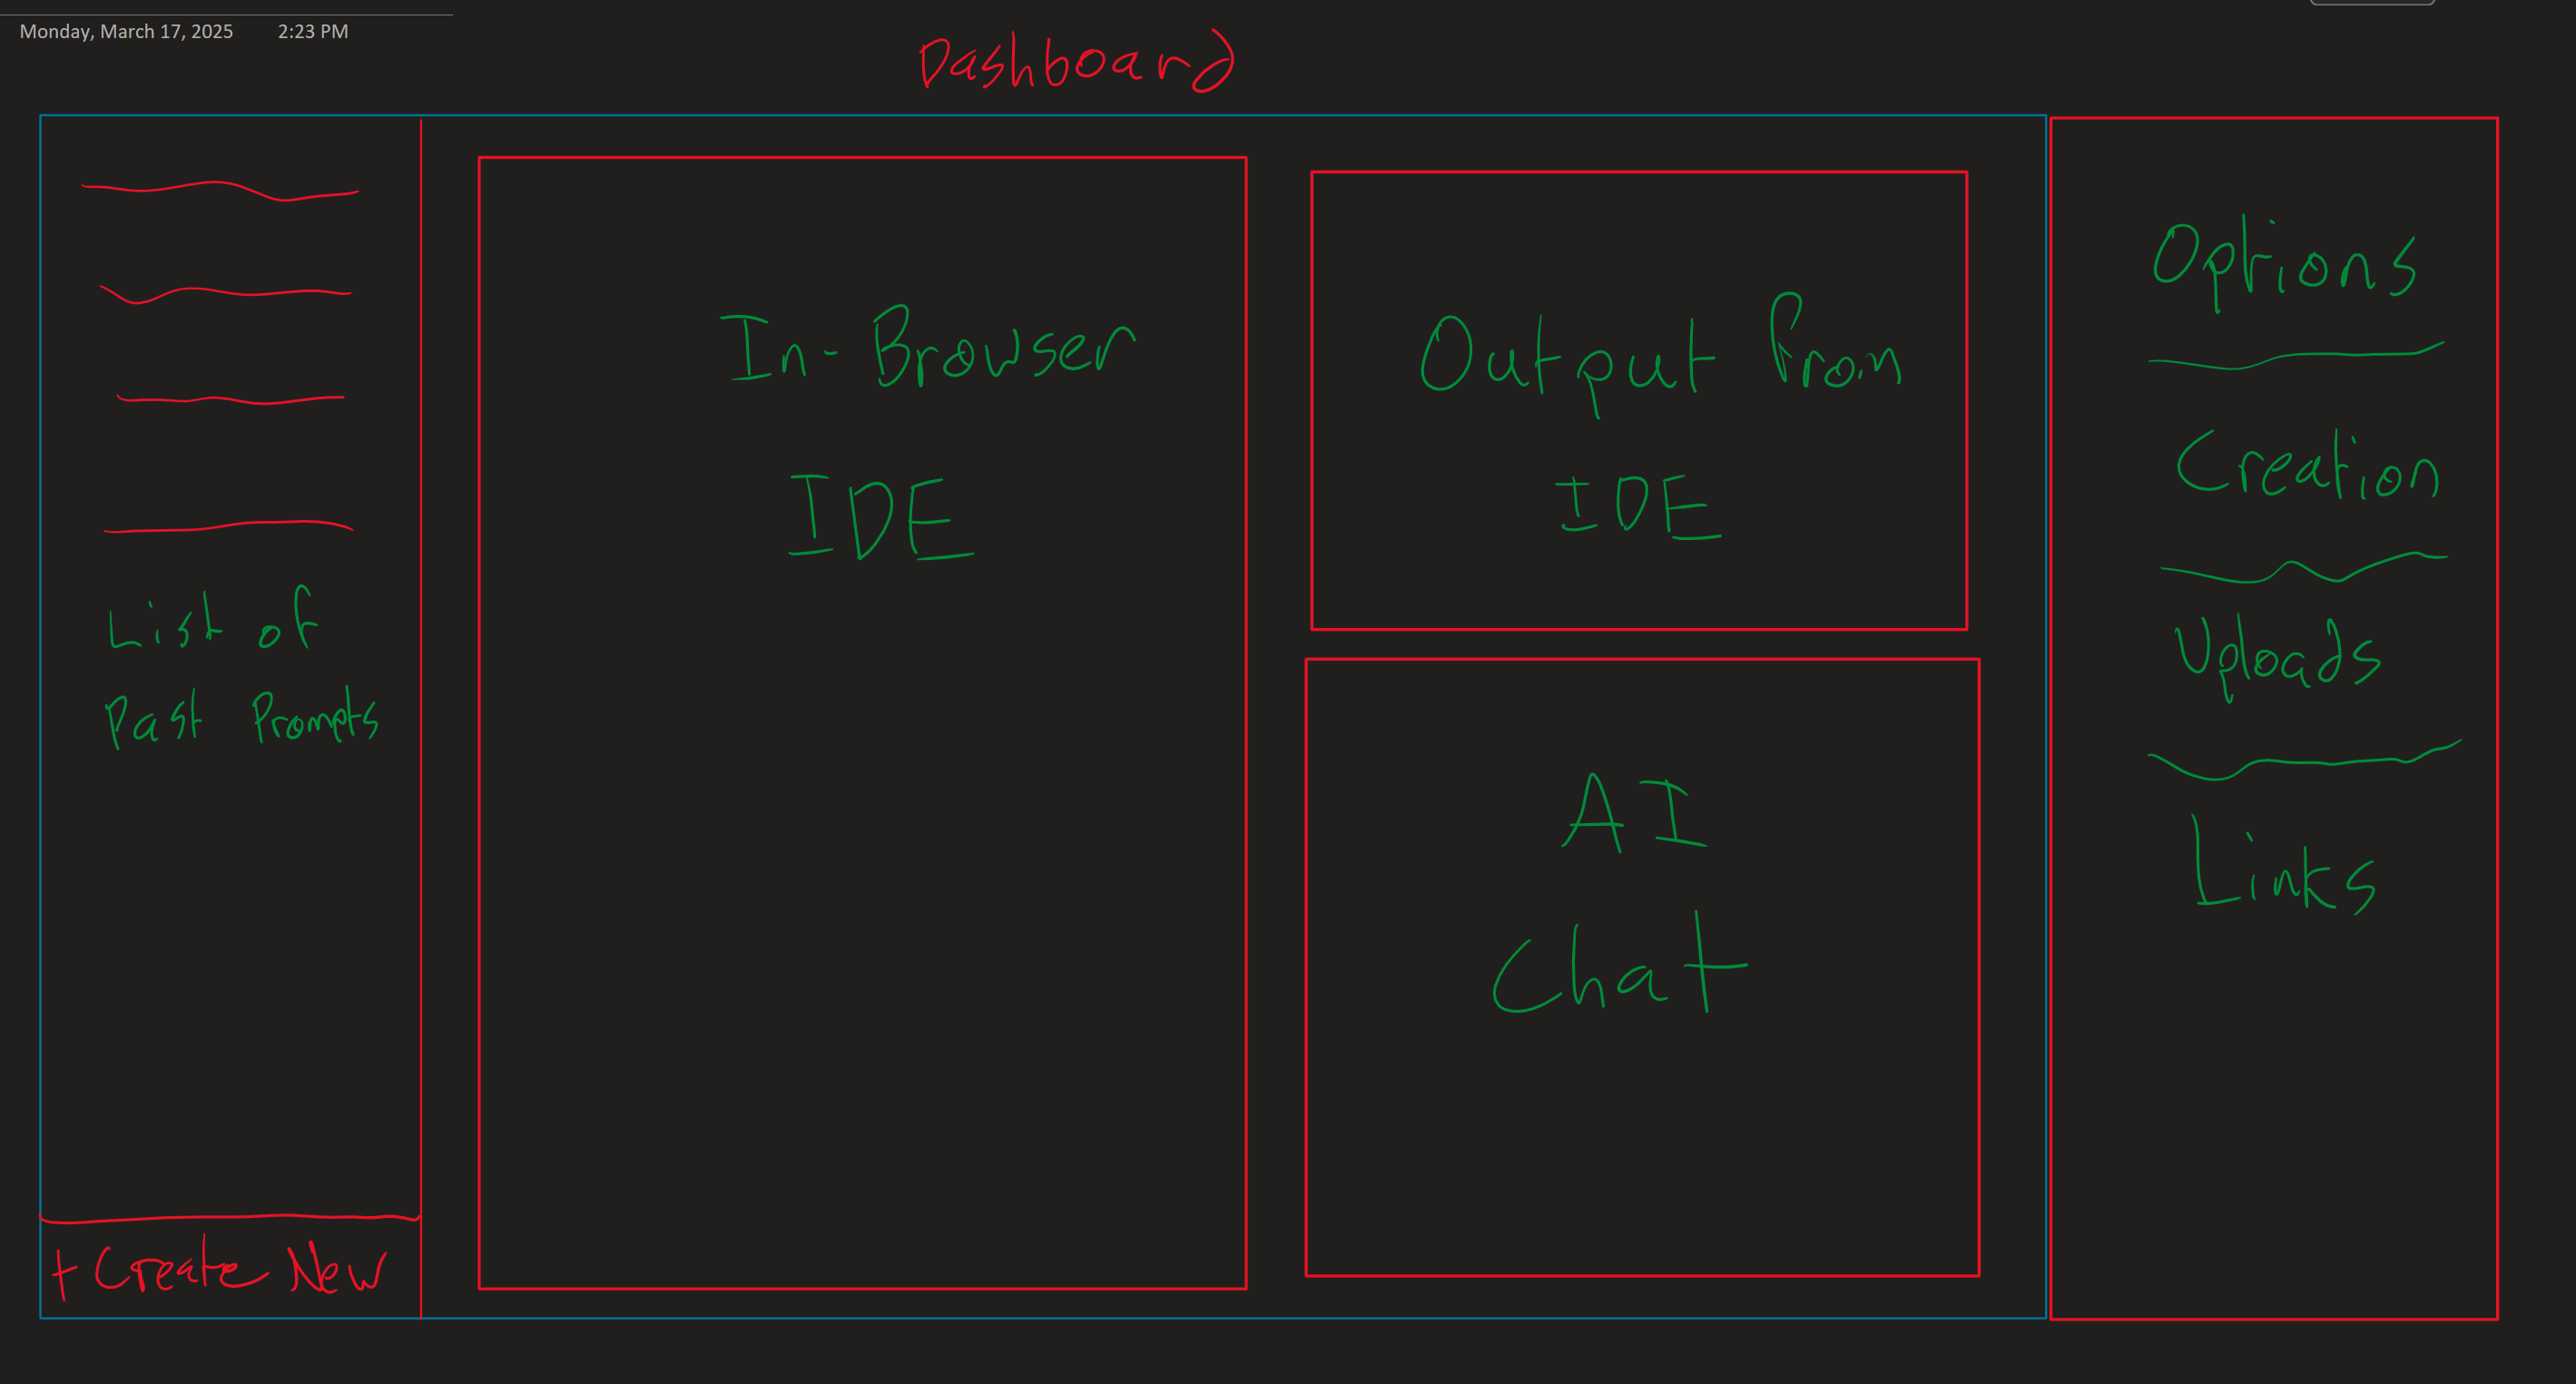 Monday, March 17, 2025 2:23 PM
Dashboard
List of
Past Prompts
+ Create New
In-Browser
IDE
Output From
IDE
AI
Chat
Options
Creation
Uploads
Links